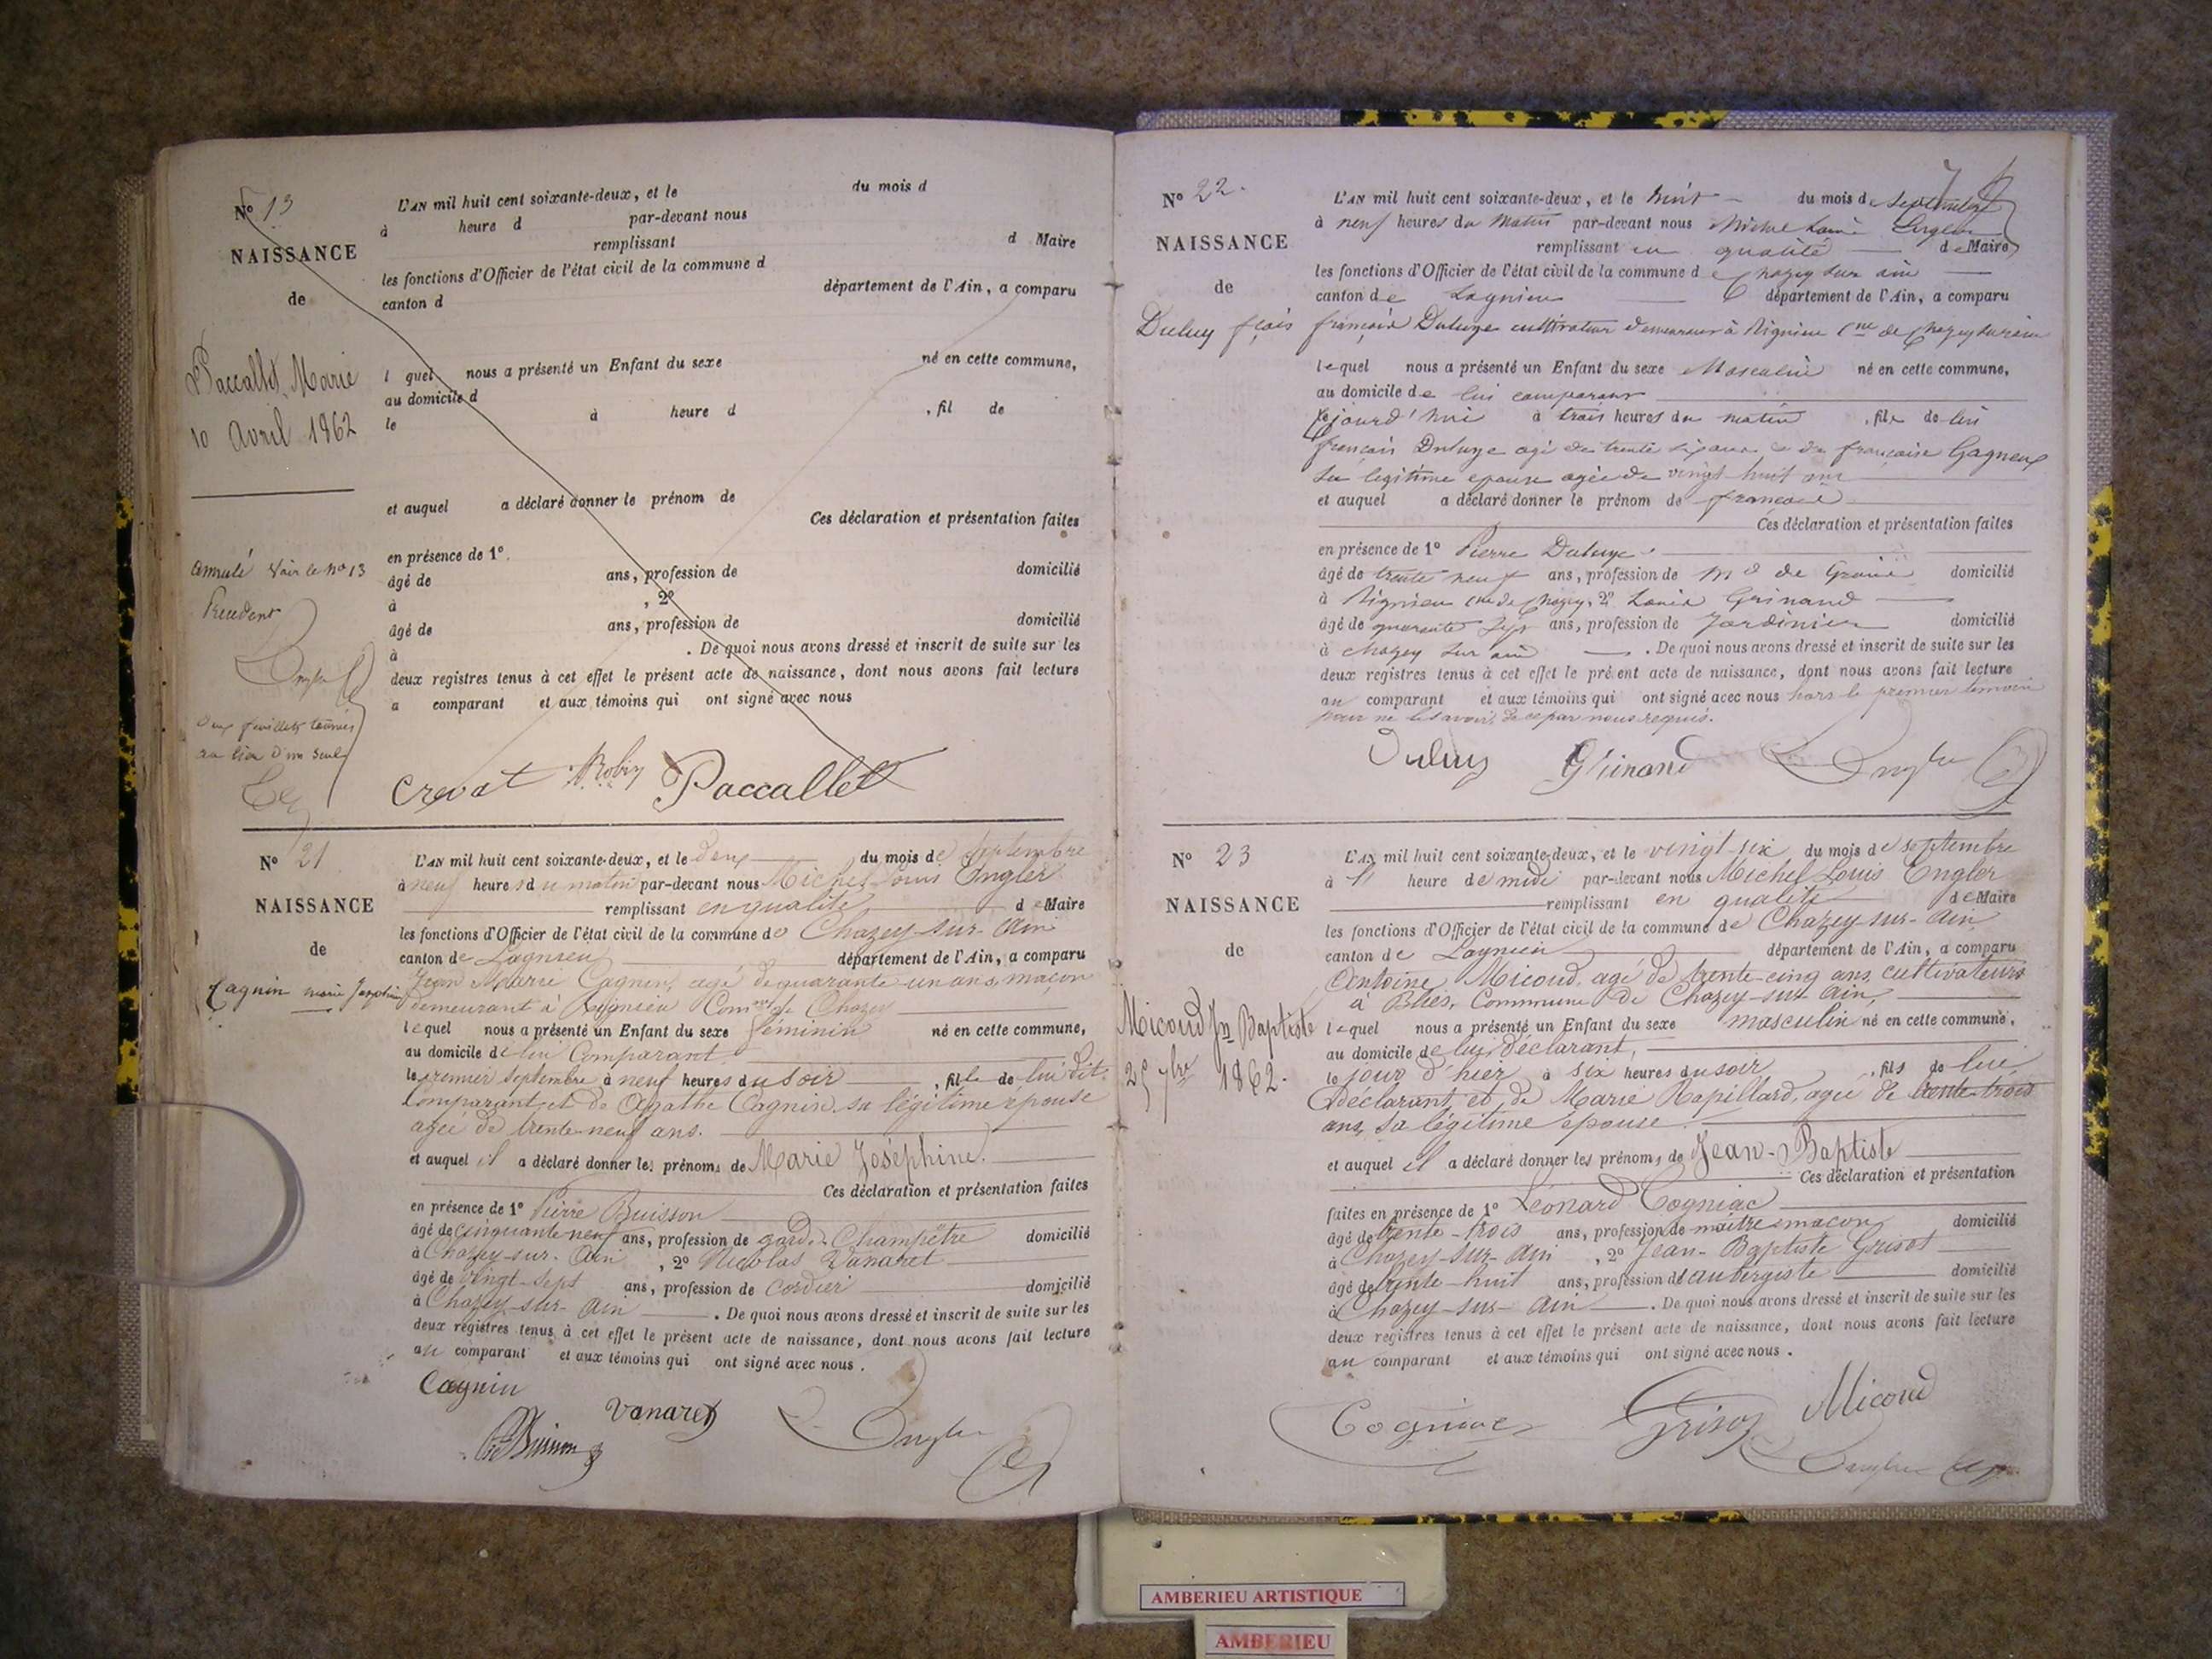 N° 13
NAISSANCE
de
Paccallet Marie
10 Avril 1862
annulé Voir le N° 13
Précédent
Deux feuillets tournés
au lieu d'un seul
L'AN mil huit cent soixante-deux, et le du mois d
à heure d par-devant nous
remplissant d Maire
les fonctions d'Officier de l'état civil de la commune d
canton d département de l'Ain, a comparu
l quel nous a présenté un Enfant du sexe né en cette commune,
au domicile d
le à heure d , fil de
et auquel a déclaré donner le prénom de
Ces déclaration et présentation faites
en présence de 1°.
âgé de ans, profession de domicilié
à , 2°
âgé de ans, profession de domicilié
à . De quoi nous avons dressé et inscrit de suite sur les
deux registres tenus à cet effet le présent acte de naissance, dont nous avons fait lecture
a comparant et aux témoins qui ont signé avec nous
Crevat Robin Paccallet
N° 21
NAISSANCE
de
Cagnin marie Josephine
L'AN mil huit cent soixante-deux, et le deux du mois de Septembre
à neuf heures du matin par-devant nous Michel Louis Engler
remplissant en qualité de Maire
les fonctions d'Officier de l'état civil de la commune de Chazey-sur-Ain
canton de Lagnieu département de l'Ain, a comparu
Jean Marie Cagnin, agé de quarante-un ans, maçon
demeurant à Rignieu Comne de Chazey
lequel nous a présenté un Enfant du sexe féminin né en cette commune,
au domicile de lui Comparant
le premier Septembre à neuf heures du soir , fille de lui dit
Comparant et de Agathe Cagnin, sa légitime épouse
agée de trente-neuf ans.
et auquel il a déclaré donner les prénoms de Marie Joséphine.
Ces déclaration et présentation faites
en présence de 1° Pierre Buisson
âgé de cinquante neuf ans, profession de garde-Champêtre domicilié
à Chazey-sur-Ain , 2° Nicolas Vanaret
âgé de vingt-sept ans, profession de cordier domicilié
à Chazey-sur-Ain . De quoi nous avons dressé et inscrit de suite sur les
deux registres tenus à cet effet le présent acte de naissance, dont nous avons fait lecture
au comparant et aux témoins qui ont signé avec nous.
Cagnin
Vanaret
Buisson
Engler
N° 22.
NAISSANCE
de
Duluy fçois
L'AN mil huit cent soixante-deux, et le huit du mois de septembre
à neuf heures du matin par-devant nous Michel Louis Engler
remplissant en qualité de Maire
les fonctions d'Officier de l'état civil de la commune de Chazey sur ain
canton de Lagnieu département de l'Ain, a comparu
françois Duluye cultivateur demeurant à Rignieu Cne de Chazey sur ain
lequel nous a présenté un Enfant du sexe Masculin né en cette commune,
au domicile de lui comparant
cejourd'hui à trois heures du matin , fils de lui
françois Duluye agé de trente six ans & de françoise Gagneux
sa legitime epouse agée de vingt huit ans
et auquel a déclaré donner le prénom de françois
Ces déclaration et présentation faites
en présence de 1° Pierre Duluye
âgé de trente neuf ans, profession de Md de Graine domicilié
à Rignieu Cne de Chazey, 2° Louis Grinand
âgé de quarante sept ans, profession de Jardinier domicilié
à Chazey sur ain . De quoi nous avons dressé et inscrit de suite sur les
deux registres tenus à cet effet le présent acte de naissance, dont nous avons fait lecture
au comparant et aux témoins qui ont signé avec nous hors le premier temoin
pour ne le savoir, de ce par nous requis.
Duluy Grinand Engler
N° 23
NAISSANCE
de
Micoud Jn Baptiste
25 7bre 1862.
L'AN mil huit cent soixante-deux, et le vingt-six du mois de septembre
à heure de midi par-devant nous Michel Louis Engler
remplissant en qualité de Maire
les fonctions d'Officier de l'état civil de la commune de Chazey-sur-Ain
canton de Lagnieu département de l'Ain, a comparu
Antoine Micoud, agé de trente-cinq ans, cultivateur
à Blies, Commune de Chazey-sur-Ain,
lequel nous a présenté un Enfant du sexe masculin né en cette commune,
au domicile de lui, déclarant,
le jour d'hier à six heures du soir , fils de lui
déclarant, et de Marie Rapillard, agée de trente-trois
ans, sa légitime épouse.
et auquel il a déclaré donner les prénoms de Jean-Baptiste
Ces déclaration et présentation
faites en présence de 1° Léonard Cogniac
âgé de trente-trois ans, profession de maître maçon domicilié
à Chazey-sur-Ain , 2° Jean-Baptiste Grisot
âgé de trente-huit ans, profession d'aubergiste domicilié
à Chazey-sur-Ain . De quoi nous avons dressé et inscrit de suite sur les
deux registres tenus à cet effet le présent acte de naissance, dont nous avons fait lecture
au comparant et aux témoins qui ont signé avec nous.
Cogniac Grisot Micoud
Engler
AMBERIEU ARTISTIQUE
AMBERIEU